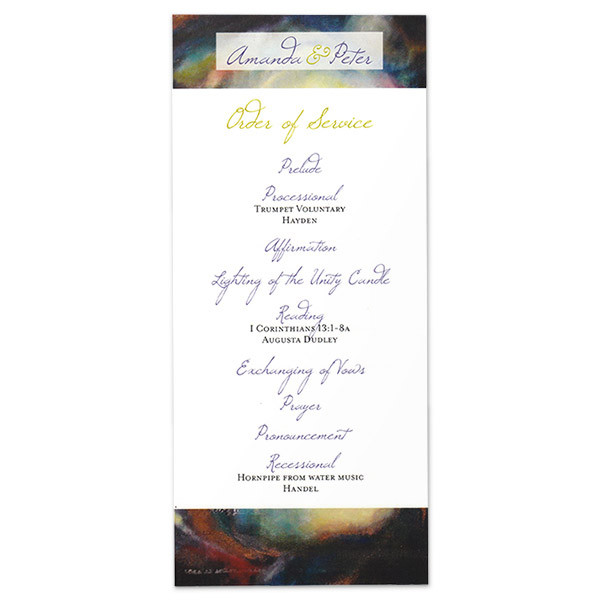 Amanda & Peter
Order of Service
Prelude
Processional
Trumpet Voluntary
Hayden
Affirmation
Lighting of the Unity Candle
Reading
1 Corinthians 13:1-8a
Augusta Dudley
Exchanging of Vows
Prayer
Pronouncement
Recessional
Hornpipe from water music
Handel